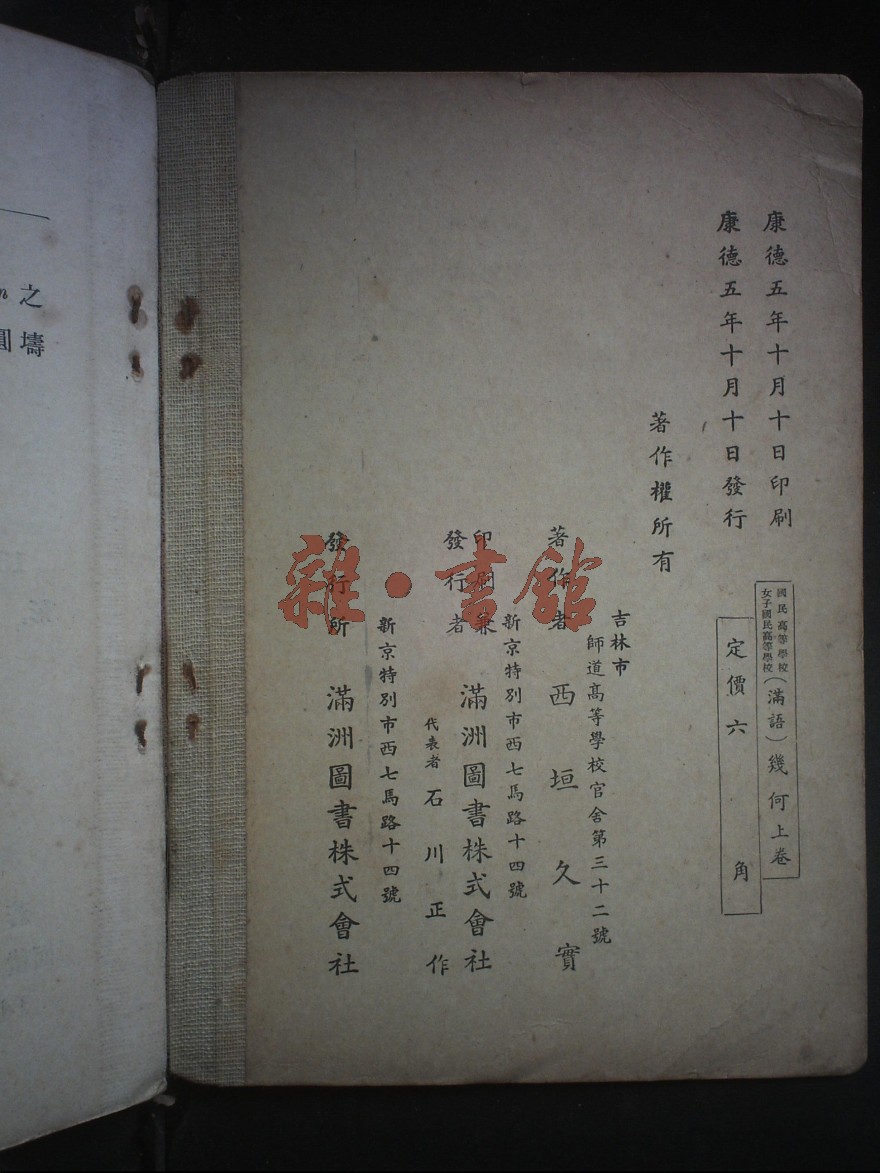 康德五年十月十日印刷
康德五年十月十日發行
國民高等學校
女子國民高等學校
(滿語)幾何上卷
定價六角
著作權所有
吉林市
師道高等學校官舍第三十二號
著作者 西垣久實
新京特別市西七馬路十四號
印刷兼
發行者
滿洲圖書株式會社
代表者 石川正作
新京特別市西七馬路十四號
發行所 滿洲圖書株式會社
雜·書館
之
壔
圓